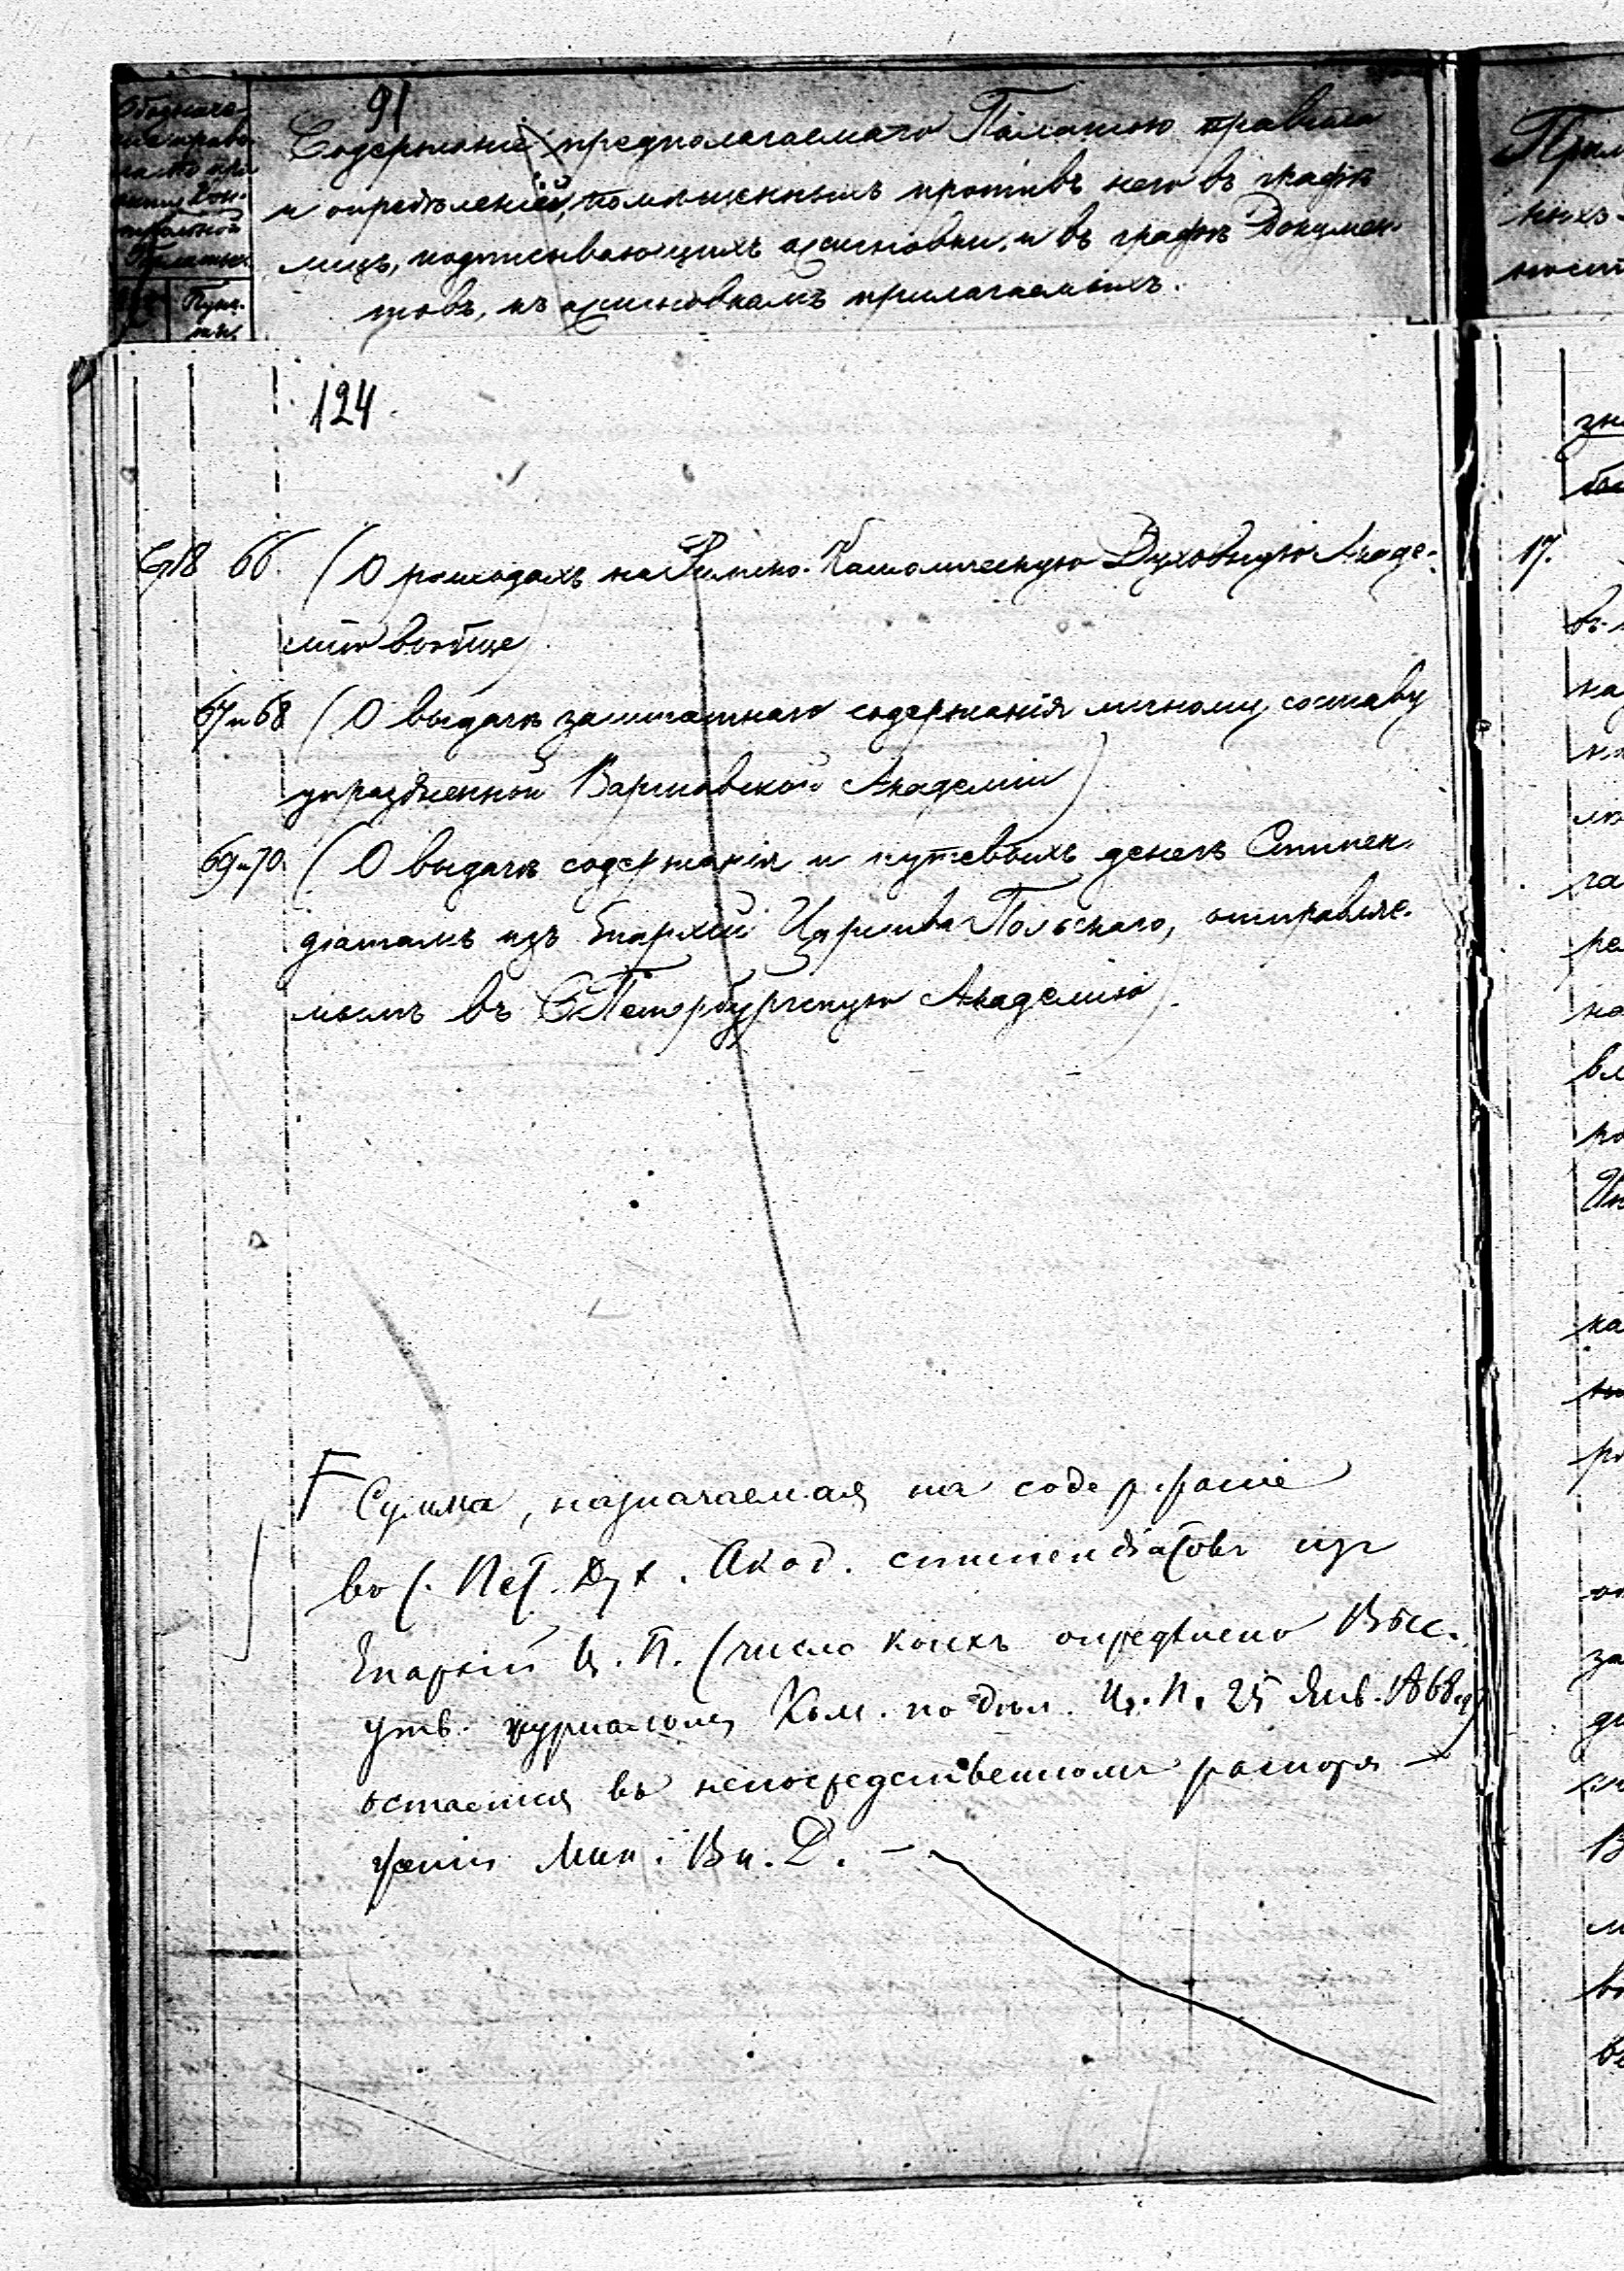 91
Обозначе-
ние правъ
Кон-
трольной
Палаты.
Пунк-
ты.
Содержаніе предполагаемаго Палатою правила
и опредѣленій, помѣщенныхъ противъ него въ графѣ
лицъ, подписывающихъ ассигновки, и въ графѣ Докумен-
товъ, къ ассигновкамъ прилагаемыхъ.
124.
66. (О расходахъ на Римско-Католическую Духовную Акаде-
мію вообще).
67 и 68 (О выдачѣ заштатнаго содержанія личному составу
упраздненной Варшавской Академіи)
69 и 70 (О выдачѣ содержанія и путевыхъ денегъ Стипен-
діатамъ изъ Епархій Царства Польскаго, отправляе-
мымъ въ С.Петербургскую Академію).
Сумма, назначаемая на содержаніе
въ С. Пет. Дух. Акад. стипендіатовъ изъ
Епархій Ц. П. (число коихъ опредѣлено Выс.
утв. журналомъ Ком. по дѣл. Ц. П. 25 Янв. 1868 г.)
остается въ непосредственномъ распоря-
женіи Мин. Вн. Д. —
17.